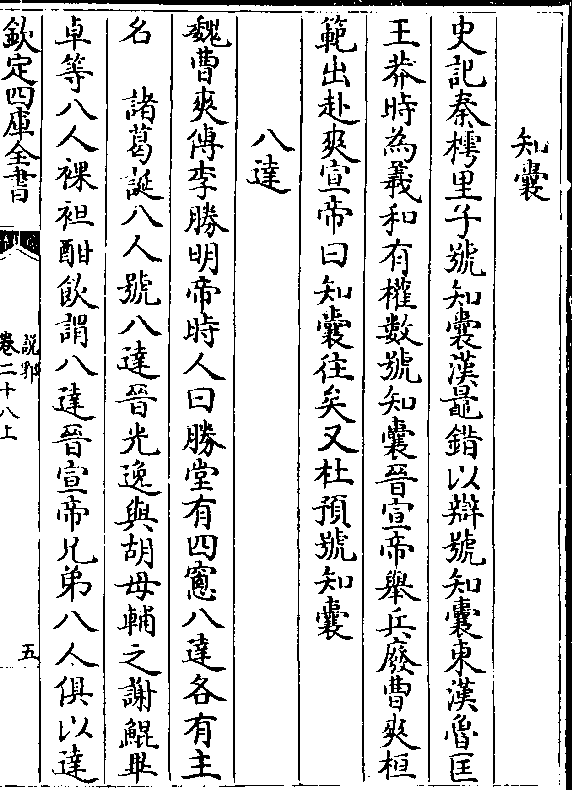 知囊
史記秦樗里子號知囊漢鼂錯以辯號知囊東漢魯匡
王莽時為羲和有權數號知囊晉宣帝舉兵廢曹爽桓
範出赴爽宣帝曰知囊往矣又杜預號知囊
八達
魏曹爽傳李勝明帝時人曰勝堂有四窻八達各有主
名　諸葛誕八人號八達晉光逸與胡母輔之謝鯤畢
卓等八人裸袒酣飲謂八達晉宣帝兄弟八人俱以達
欽定四庫全書
說郛
卷二十八上
五